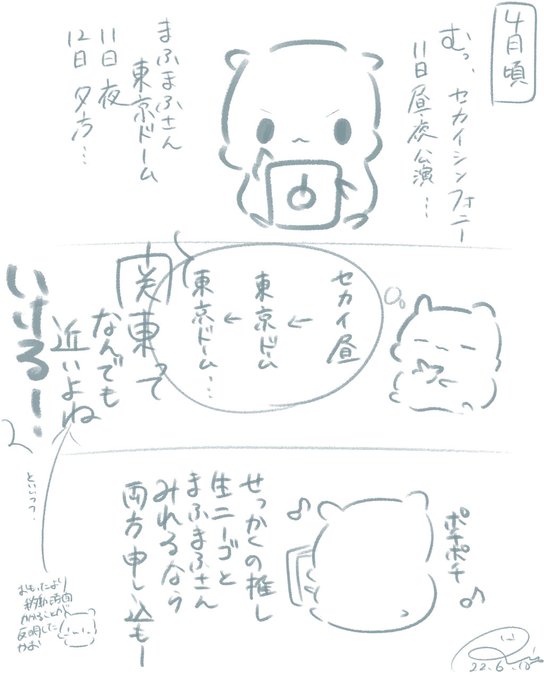 4月頃
むっ、セカイシンフォニー
11日昼・夜公演…
まふまふさん
東京ドーム
11日夜
12日夕方…
セカイ昼
↓
東京ドーム
↓
東京ドーム…
関東って
なんでも
近いよね
いけるー!
といいつつ…
おもったより
移動時間
かかることが
反明した
かお
ポチポチ
せっかくの推し
生ニーゴと
まふまふさん
みれるなら
両方申し込もー
22.6.12